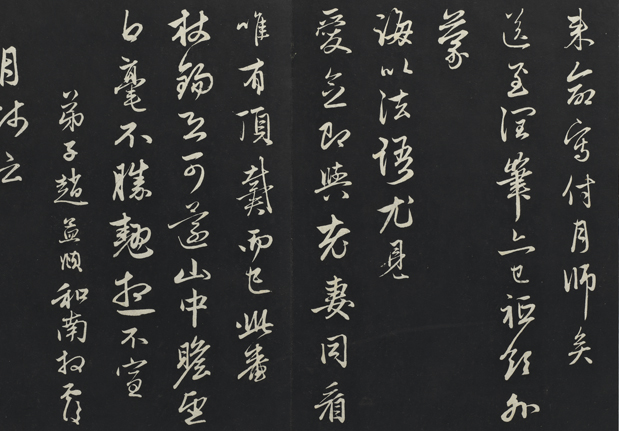 来命寫付月師矣
送至潤筆亦已祗領外
蒙
誨以法語尤見
愛之即與老妻同看
唯有頂戴而已此番
杖錫又可還山中瞻望
白毫不勝翹想不宣
弟子趙孟頫和南拜覆
月师云